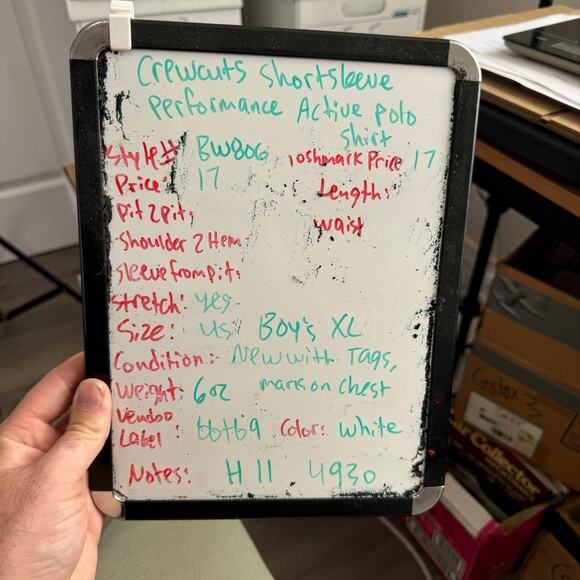 Crewcuts Shortsleeve
Performance Active polo
Shirt
Style# BW806 oshmark Price 17
Price 17 Length:
Pit 2 pit: waist
Shoulder 2 Hem:
Sleeve from pit:
Stretch: yes
Size: US Boy's XL
Condition: New with Tags,
Weight: 6oz mark on chest
Vendoo
Label : Color: white
Notes: H 11 4930